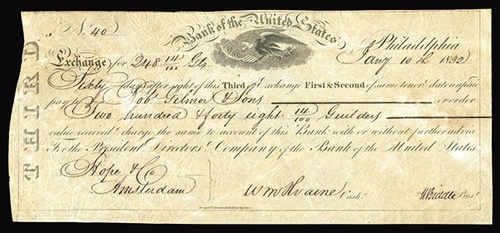 Bank of the United States
No. 40
Philadelphia
Exchange for 248 14/100 Gls. Jany 10th 1832
Sixty days after sight of this Third of Exchange First & Second of same tenor & date unpaid
pay to Rob Gilmor & Sons or order
Two hundred & forty eight 14/100 Guilders
value received & charge the same to account of this Bank with or without further advice
For the President Directors & Company of the Bank of the United States
Hope & Co.
Amsterdam
Cash.
N Biddle Prest.
THIRD